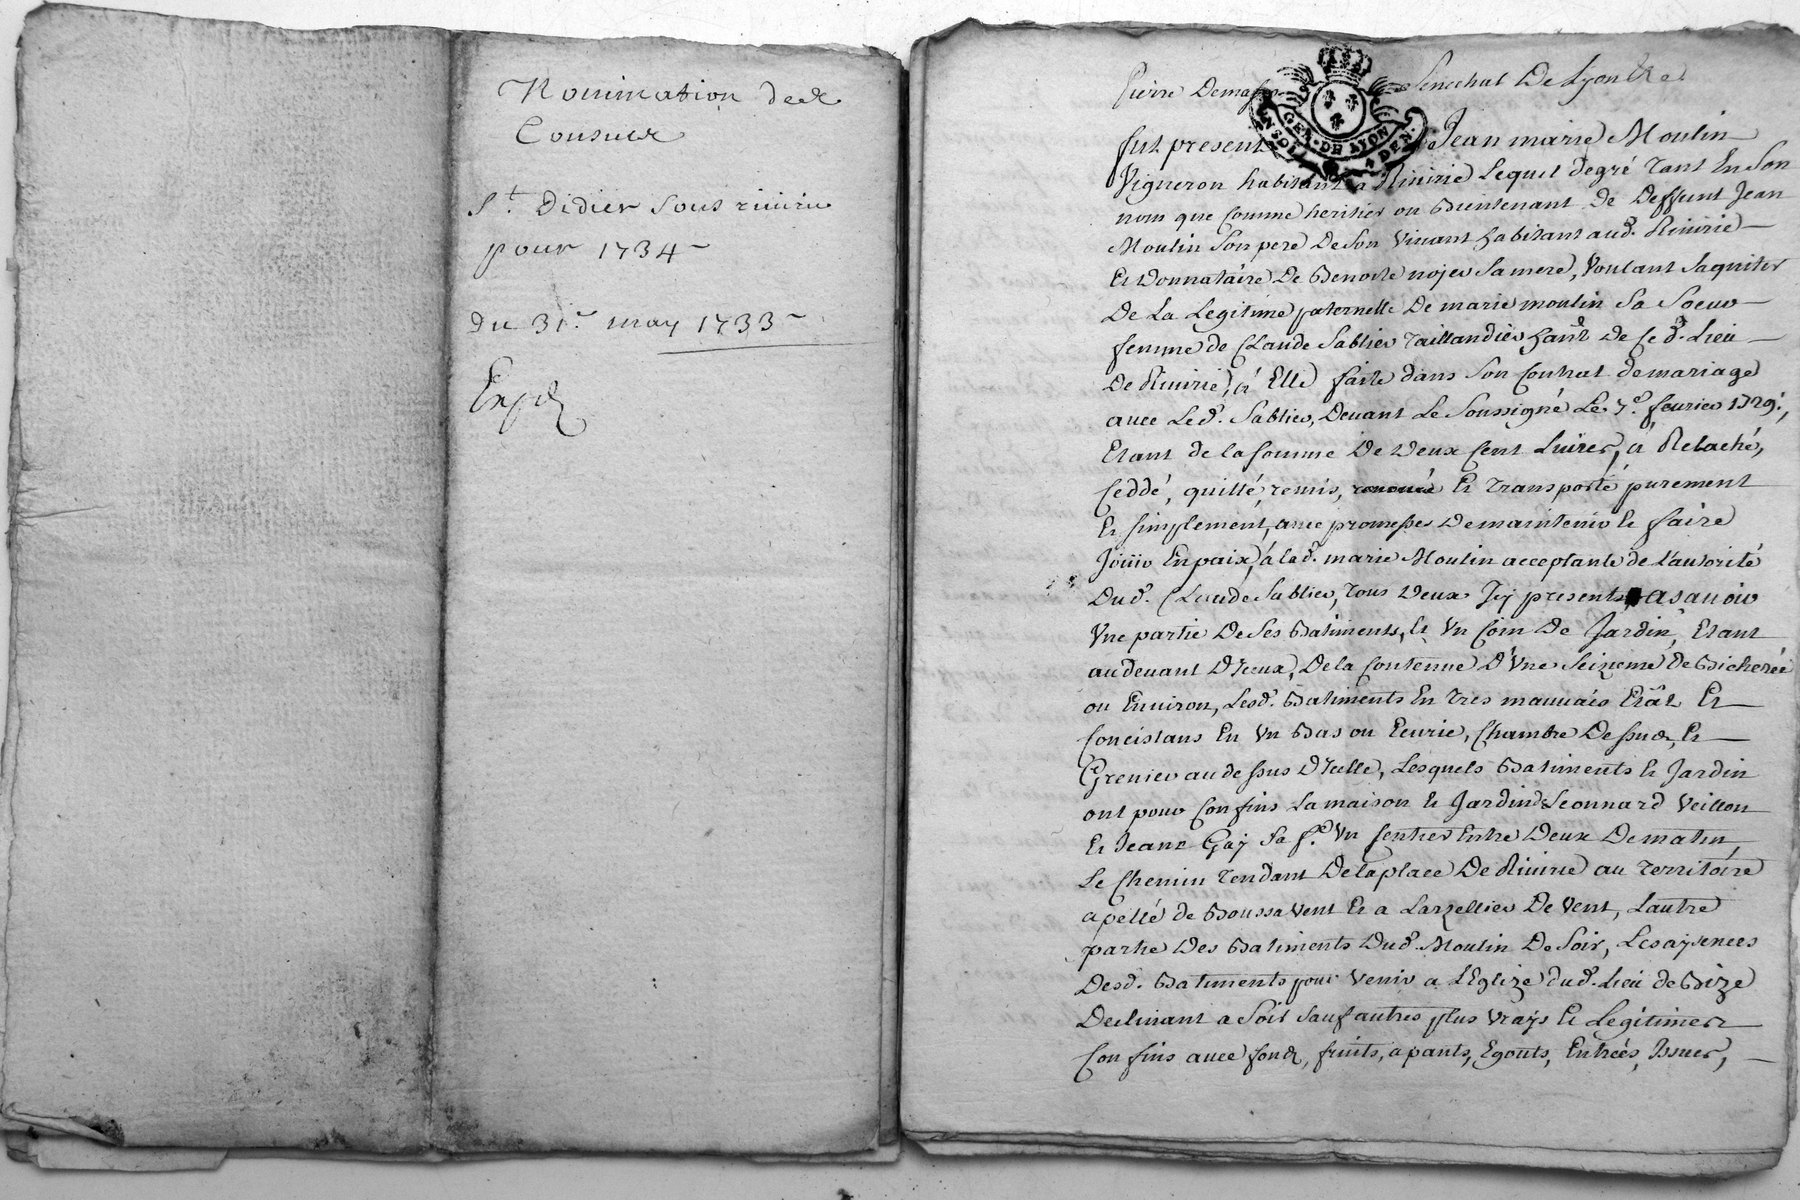 Nomination des
Consuls
St. Didier sous riuirie
pour 1734
du 31e. may 1733
Expd
Pierre Demas Senechal De Lyon &
GEN. DE LYON
UN SOL 4 DEN.
fut present Jean marie Moulin
Vigneron habitant a Riuirie Lequel degré Tant En Son
nom que Comme heritier ou Bientenant de Deffunt Jean
Moulin Son pere De Son Viuant habitant aud. Riuirie
Et Donnataire De Benoite nojer Sa mere, Voulant Saquiter
De La Legitime paternelle De marie moulin Sa Soeur
femme de Claude Sablier Taillandier hant. De Ce d. Lieu
De Riuirie, á Elle faite dans Son Contrat demariage
auec Led. Sablier, Deuant Le Soussigné Le 7e. feurier 1729,
Etant de la Somme De Deux Cent Liures, á Relaché,
Ceddé, quitté, remis, Et Transporté purement
Et Simplement, auec promesses Demaintenir Et faire
Joüir En paix, á lad. marie Moulin acceptante de l'autorité
Dud. Claude Sablier, Tous Deux Icy presents, a sauoir
Vne partie De Ses Batiments, Et Vn Coin De Jardin, Etant
audeuant D'Iceux, De la Contenue D'Vne Seizeme de Bicherée
ou Enuiron, Lesd. Batiments En Tres mauuais Etât Et
Concistans En Vn Bas ou Ecurie, Chambre Dessus, Et
Grenier au dessus D'Icelle, Lesquels Batiments Et Jardin
ont pour Confins La maison Et Jardin de Leonnard Veillon
Et Jeane Gay Sa fe. Vn Sentier Entre Deux De matin,
Le Chemin Tendant De la place De Riuirie au Territóire
apellé de Boussavent Et a Larzellier De Vent, Lautre
partie Des Batiments Dud. Moulin De Soir, Les aysences
Desd. Batiments pour Venir a L'Eglize dud. Lieu de Bize
Declinant a Soir Sauf autres plus Vrays Et Legitimes
Confins auec fonds, fruits, apants, Egouts, Entrées, Issues,